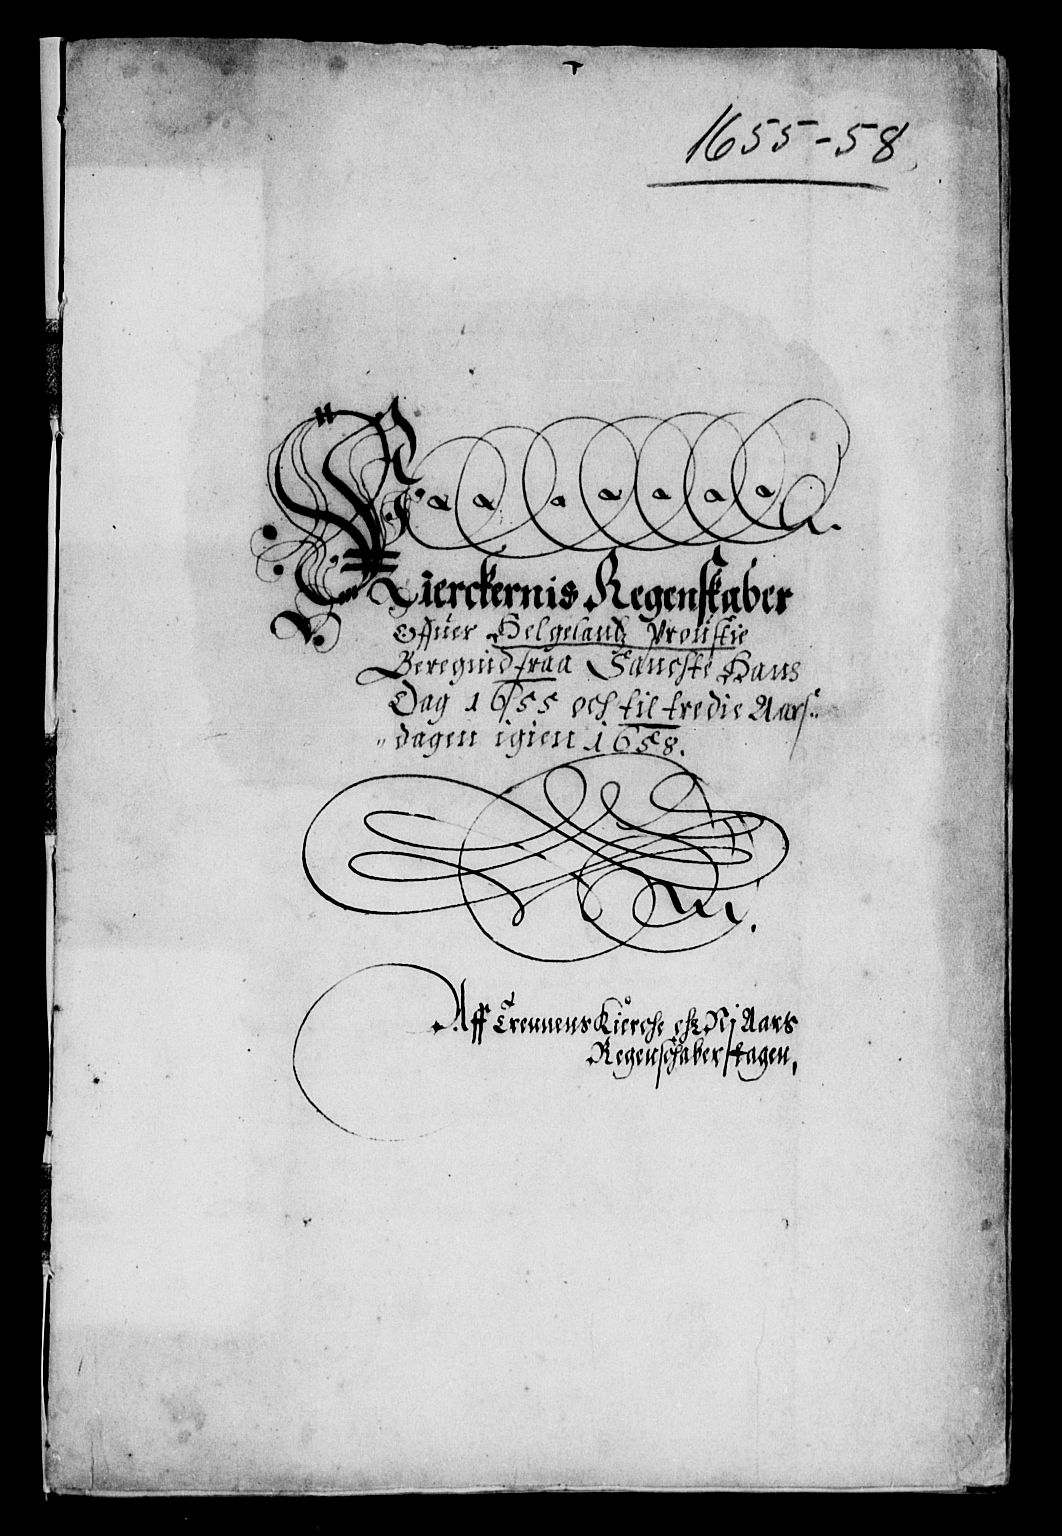 1655-58
Kierckernis Regenskaber
Offuer Helgelandz Proustie
Beregnid fraa Sancste Hans
Dag 1655 och til tredie Aars
dagen igien 1658.
Aff Trennens Kierche Aars
Regenschaber tagen,